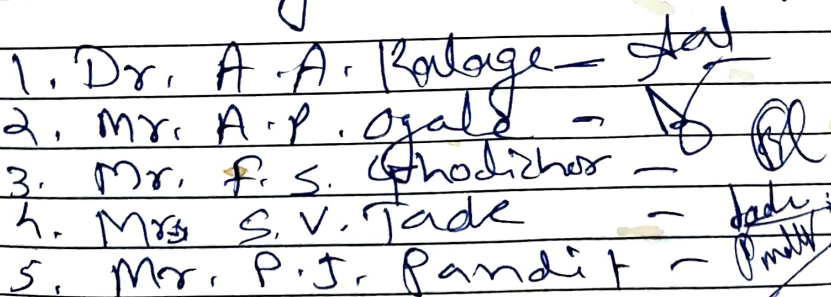 1. Dr. A.A. Kalage -
2. Mr. A.P. Ogale -
3. Mr. F.S. Ghodichor -
4. Mrs S.V. Jade - Jade
5. Mr. P.J. Pandit -